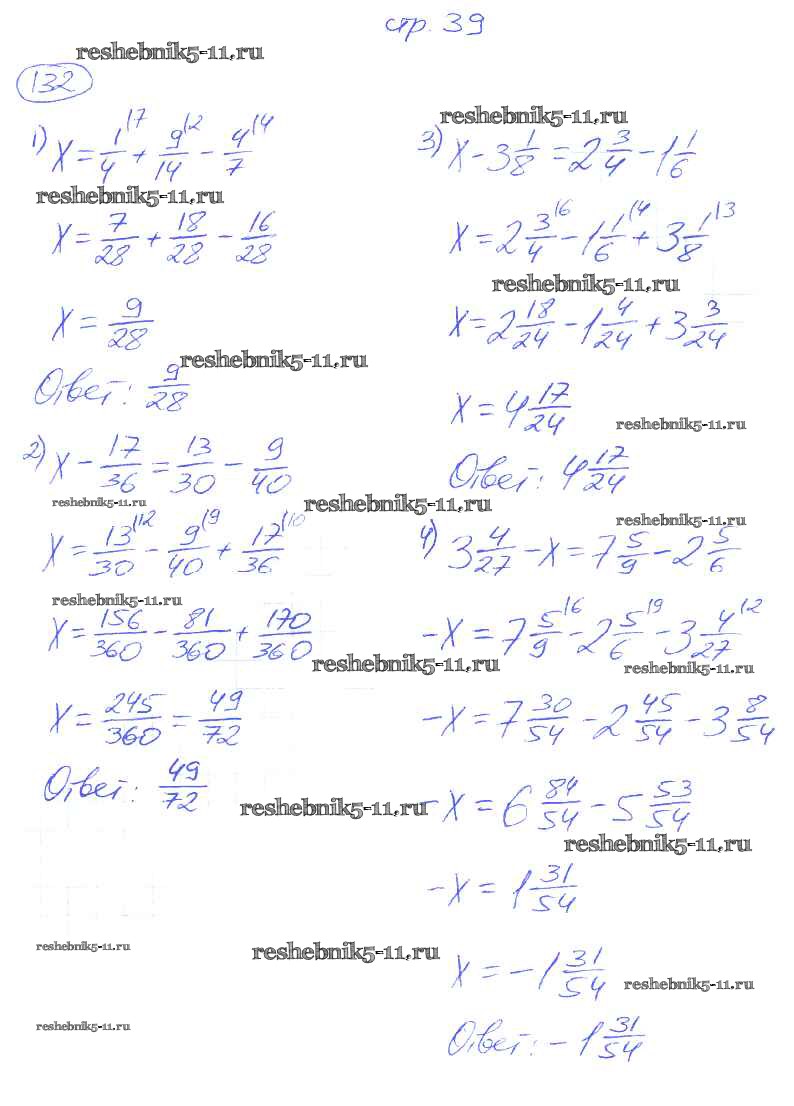 стр. 39
reshebnik5-11.ru
132
1) x = 1/4 |7 + 9/14 |2 − 4/7 |4
reshebnik5-11.ru
x = 7/28 + 18/28 − 16/28
x = 9/28
reshebnik5-11.ru
Ответ: 9/28
2) x − 17/36 = 13/30 − 9/40
reshebnik5-11.ru
reshebnik5-11.ru
x = 13/30 |12 − 9/40 |9 + 17/36 |10
reshebnik5-11.ru
x = 156/360 − 81/360 + 170/360
reshebnik5-11.ru
x = 245/360 = 49/72
Ответ: 49/72
reshebnik5-11.ru
reshebnik5-11.ru
reshebnik5-11.ru
reshebnik5-11.ru
reshebnik5-11.ru
3) x − 3 1/8 = 2 3/4 − 1 1/6
x = 2 3/4 |6 − 1 1/6 |4 + 3 1/8 |3
reshebnik5-11.ru
x = 2 18/24 − 1 4/24 + 3 3/24
x = 4 17/24
reshebnik5-11.ru
Ответ: 4 17/24
reshebnik5-11.ru
4) 3 4/27 − x = 7 5/9 − 2 5/6
−x = 7 5/9 |6 − 2 5/6 |9 − 3 4/27 |2
reshebnik5-11.ru
−x = 7 30/54 − 2 45/54 − 3 8/54
−x = 6 84/54 − 5 53/54
reshebnik5-11.ru
−x = 1 31/54
x = −1 31/54
reshebnik5-11.ru
Ответ: −1 31/54